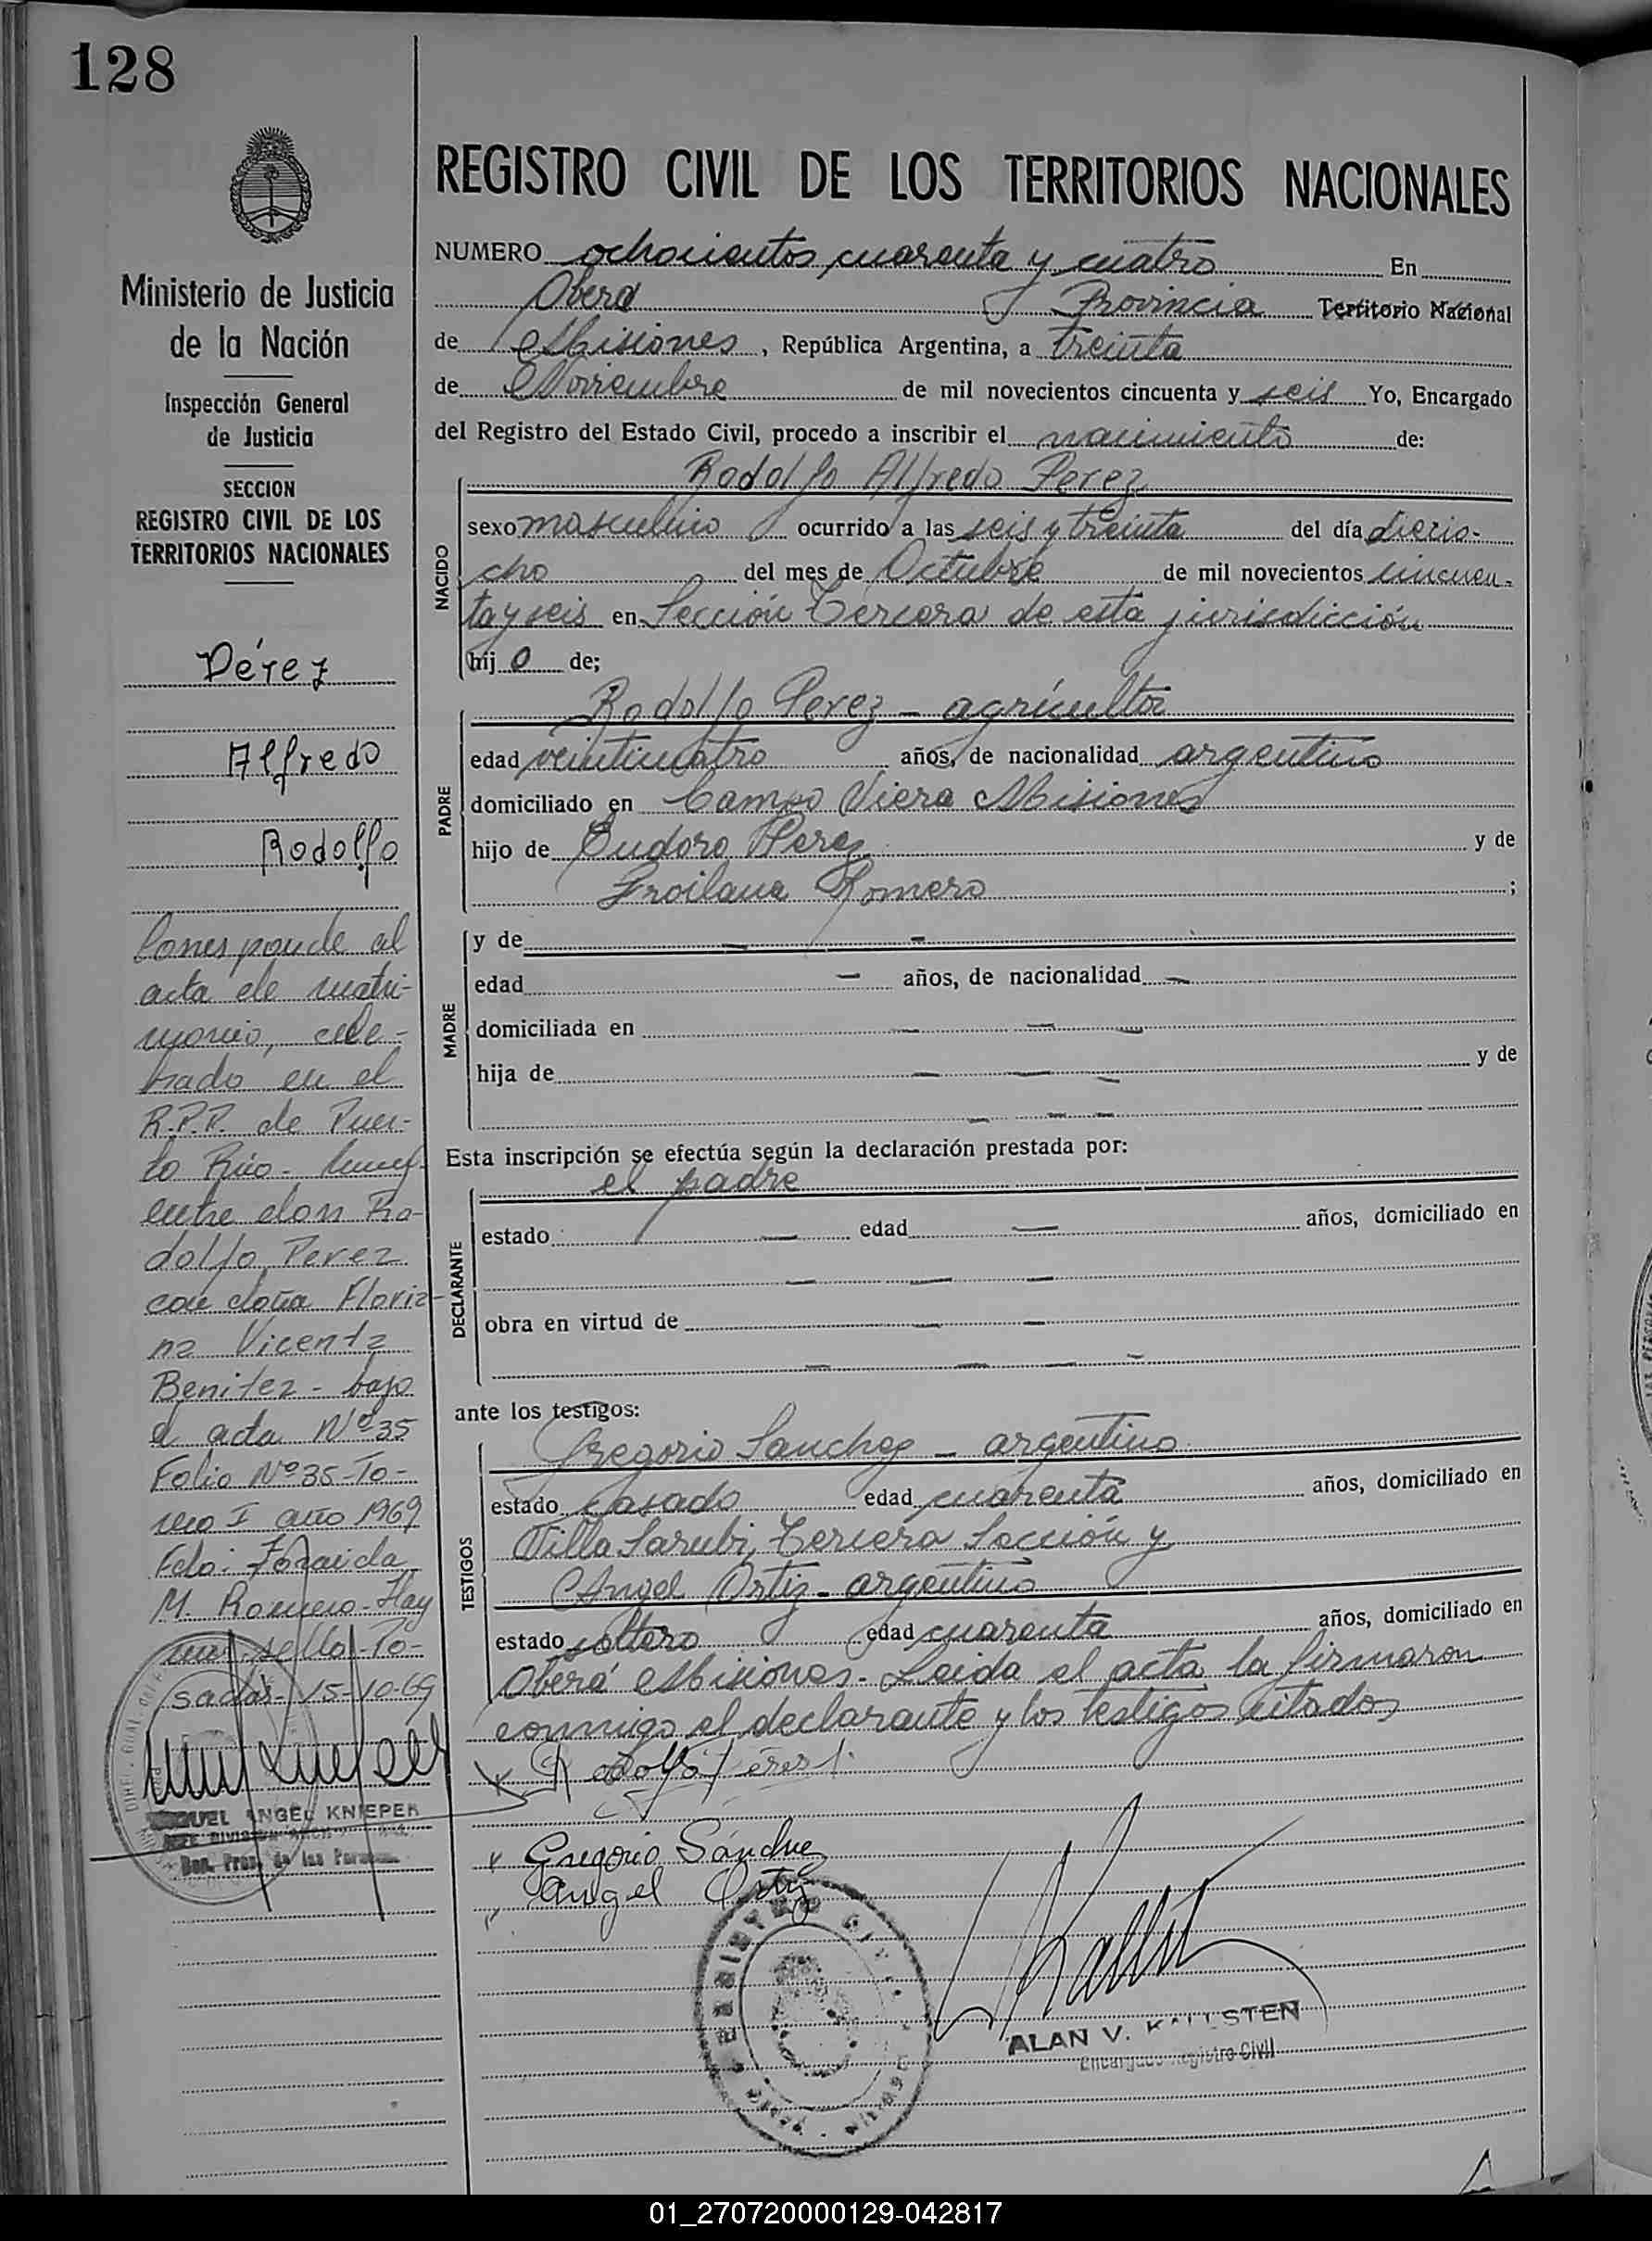 128
Ministerio de Justicia
de la Nación
Inspección General
de Justicia
SECCION
REGISTRO CIVIL DE LOS
TERRITORIOS NACIONALES
Pérez
Alfredo
Rodolfo
Corresponde al
acta de matri-
monio, cele-
brado en el
R.P.P. de Puer-
to Rico -
entre don Ro-
dolfo Perez
con doña Flori-
na Vicenta
Benitez - bajo
el acta Nº 35
Folio Nº 35 - To-
mo I año 1969
Fdo: Zoraida
M. Romero - Hay
un sello - Po-
sadas - 15-10-69
MIGUEL ANGEL KNIEPER
REGISTRO CIVIL DE LOS TERRITORIOS NACIONALES
NUMERO ochocientos cuarenta y cuatro En
Oberá Provincia Territorio Nacional
de Misiones, República Argentina, a treinta
de Noviembre de mil novecientos cincuenta y seis Yo, Encargado
del Registro del Estado Civil, procedo a inscribir el nacimiento de:
Rodolfo Alfredo Perez
NACIDO
sexo masculino ocurrido a las seis y treinta del día diecio-
cho del mes de Octubre de mil novecientos cincuen-
ta y seis en Sección Tercera de esta jurisdicción
hij o de;
Rodolfo Perez - agricultor
PADRE
edad veinticuatro años, de nacionalidad argentino
domiciliado en Campo Viera Misiones
hijo de Eudoro Perez y de
Froilana Romero ;
MADRE
y de - -
edad - años, de nacionalidad -
domiciliada en - - -
hija de - - - y de
- - -
Esta inscripción se efectúa según la declaración prestada por:
el padre
DECLARANTE
estado - edad - años, domiciliado en
- - -
obra en virtud de - -
- - - -
ante los testigos:
Gregorio Sanchez - argentino
TESTIGOS
estado casado edad cuarenta años, domiciliado en
Villa Sarubi, Tercera Sección y
Angel Ortiz - argentino
estado soltero edad cuarenta años, domiciliado en
Oberá Misiones. Leida el acta la firmaron
conmigo el declarante y los testigos citados
x Rodolfo Pérez
x Gregorio Sánchez
" Angel Ortiz
ALAN V. KALLSTEN
Encargado Registro Civil
01_270720000129-042817